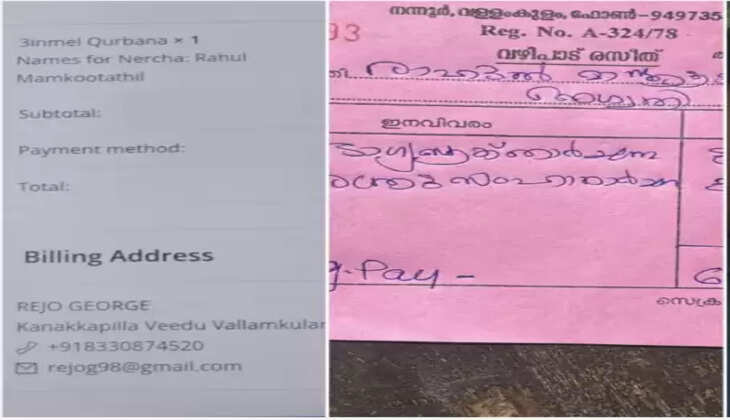 3inmel Qurbana × 1
Names for Nercha: Rahul
Mamkootathil
Subtotal:
Payment method:
Total:
Billing Address
REJO GEORGE
Kanakkapilla Veedu Vallamkular
+918330874520
rejog98@gmail.com
നന്നൂർ, വള്ളംകുളം, ഫോൺ-949735
93 Reg. No. A-324/78
വഴിപാട് രസീത്
രാഹുൽ
ഇനവിവരം
ഭാഗ്യസൂക്താർച്ചന
ശത്രുസംഹാരാർച്ചന
g.Pay -
സെക്ര